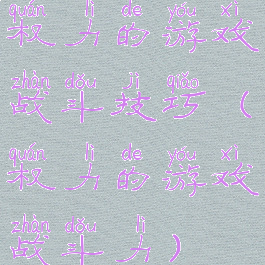 quán lì de yóu xì
权力的游戏
zhàn dǒu jì qiǎo
战斗技巧（
quán lì de yóu xì
权力的游戏
zhàn dǒu lì
战斗力）